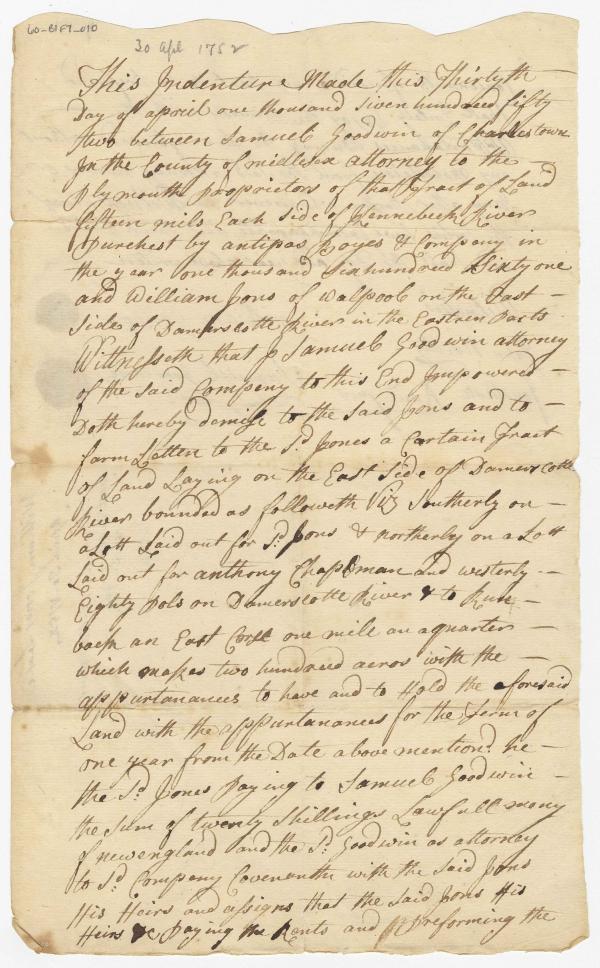 60-B1F7-010
30 Apl 1752
This Indenture Made this Thirtyth
Day of april one thousand Siven hundred fifty
two between Samuel Goodwin of Charlestown
In the County of midlesex attorney to the
Plymouth Proprietors of that Tract of Land
fifteen mils Each Side of Kennebeck River
Purchest by antipas Boyes & Company in
the year one thousand Sixhundreed Sixty one
and William Jons of Walpool on the East
Side of Damerscotte River in the Eastren Parts
Wittnesseth that Samuel Goodwin attorney
of the Said Compeny to this End Impowered
Doth hereby demise to the Said Jons and to
farm Letten to the Sd Jones a Cartain Tract
of Land Laying on the East Side of Damerscotte
River bounded as followeth Viz Southerly on
a Lott Laid out for Sd Jons & northerly on a Lott
Laid out for anthony Chapman and westerly
Eighty Pols on Damerscotte River & to Run
back an East one mile an a quarter
which makes two hundred acres with the
appurtanances to have and to Hold the aforesaid
Land with the appurtanances for the Term of
one year from the Date above mentiond he
the Sd Jones Paying to Samuel Goodwin
the Sum of twenty Shillings Lawfull mony
of newengland and the Sd Goodwin as attorney
to Sd Company Covenanth with the Said Jons
His Heirs and assigns that the Said Jons His
Heirs &c Paying the Rents and Preforming the